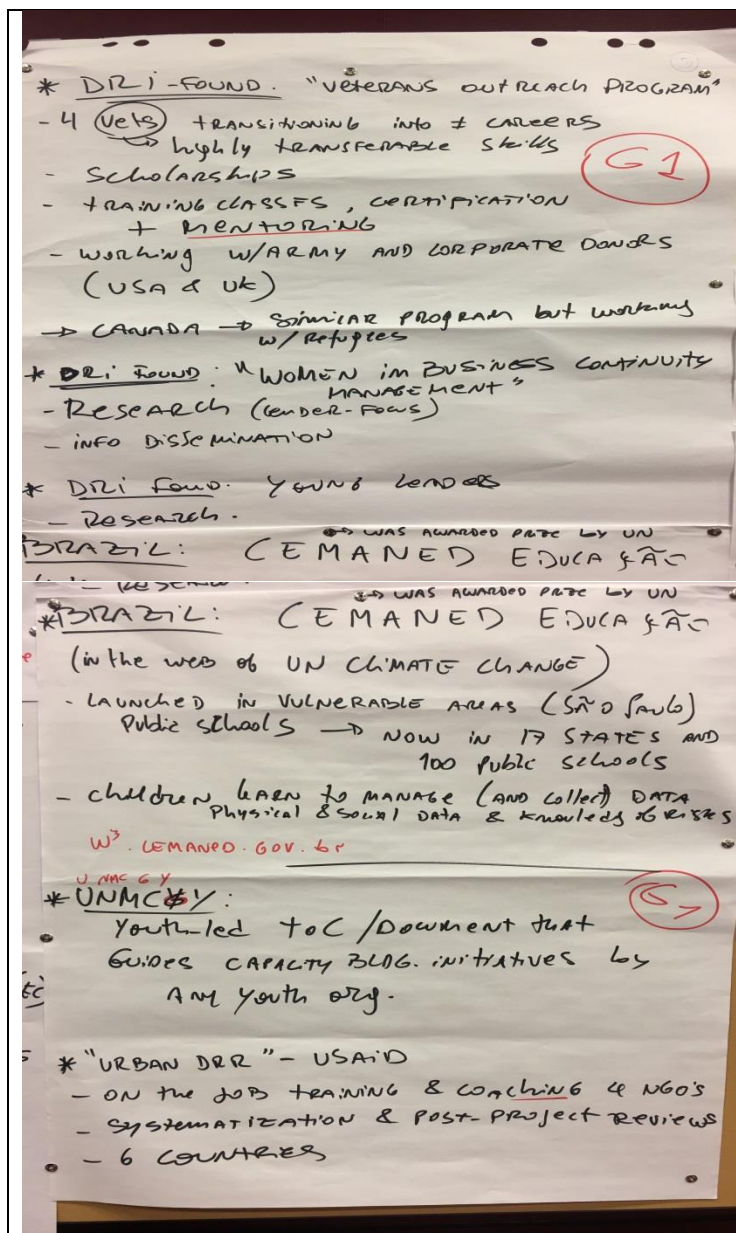 * DRI-FOUND. "VETERANS OUTREACH PROGRAM"
- 4 Vets TRANSITIONING INTO ≠ CAREERS
↳ highly TRANSFERABLE Skills
G1
- Scholarships
- TRAINING CLASSES, CERTIFICATION
+ MENTORING
- WORKING W/ARMY AND CORPORATE DONORS
(USA & UK)
→ CANADA → SIMILAR PROGRAM but working
w/Refugees
* DRI FOUND: "WOMEN IN BUSINESS CONTINUITY
MANAGEMENT"
- RESEARCH (GENDER-FOCUS)
- INFO DISSEMINATION
* DRI FOUD. YOUNG LEADERS
- RESEARCH.
↔ WAS AWARDED PRIZE by UN
BRAZIL: CEMANED EDUCAÇÃO
- RESEARCH.
↔ WAS AWARDED PRIZE by UN
*BRAZIL: CEMANED EDUCAÇÃO
(in the web of UN CLIMATE CHANGE)
- LAUNCHED IN VULNERABLE AREAS (SÃO PAULO)
Public schools → NOW IN 17 STATES AND
100 public schools
- children LEARN to MANAGE (AND collect) DATA
Physical & SOCIAL DATA & knowledg of RISKS
W³.CEMANED.GOV.br
UNMCGY
* UNMCGY:
Youth-led ToC/Document that
GUIDES CAPACITY BLDG. initiatives by
ANY youth org.
* "URBAN DRR" - USAID
- ON the JOB TRAINING & COACHING 4 NGO'S
- SYSTEMATIZATION & POST-PROJECT REVIEWS
- 6 COUNTRIES